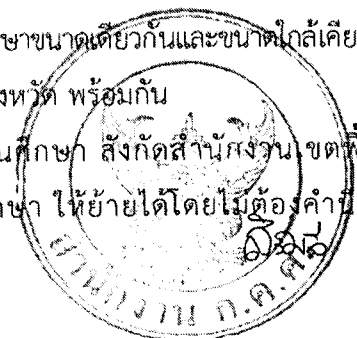 ษาขนาดเดียวกันและขนาดใกล้เคีย
งหวัด พร้อมกัน
นศึกษา สังกัดสำนักงานเขตพื้
กษา ให้ย้ายได้โดยไม่ต้องคำนึ
สำนักงาน ก.ค.ศ.